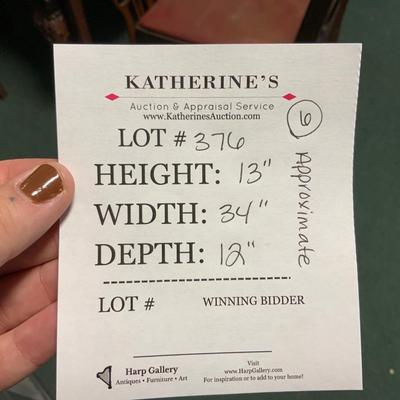 KATHERINE'S
Auction & Appraisal Service
www.KatherinesAuction.com
LOT # 376
HEIGHT: 13"
WIDTH: 34"
DEPTH: 12"
6 Approximate
LOT # WINNING BIDDER
Harp Gallery
Antiques • Furniture • Art
Visit
www.HarpGallery.com
For inspiration or to add to your home!